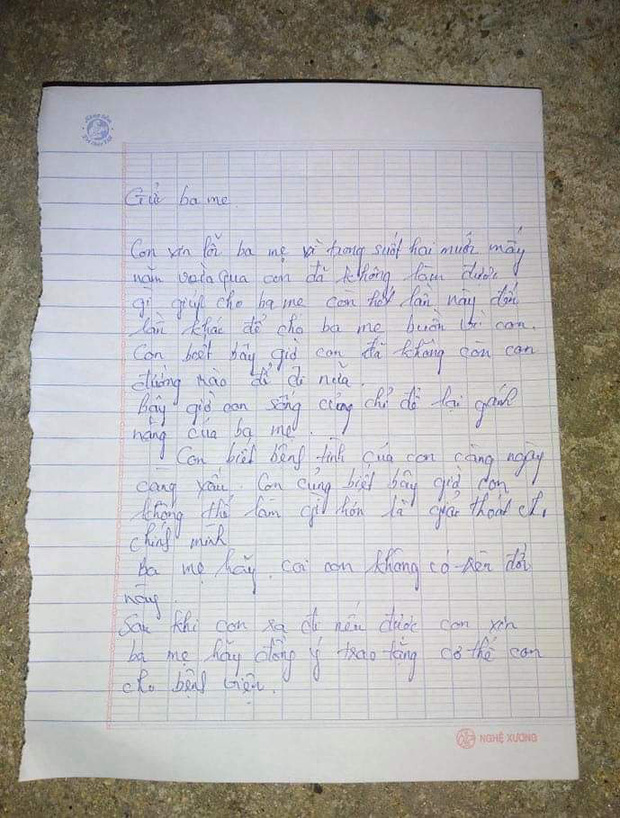 Gửi ba mẹ.
Con xin lỗi ba mẹ vì trong suốt hai mươi mấy
năm vừa qua con đã không làm được
gì giúp cho ba mẹ con hết lần này đến
lần khác để cho ba mẹ buồn vì con.
Con biết bây giờ con đã không còn con
đường nào để đi nữa.
Bây giờ con sống cũng chỉ để lại gánh
nặng của ba mẹ.
Con biết bệnh tình của con càng ngày
càng xấu. Con cũng biết bây giờ con
không thể làm gì hơn là giải thoát
chính mình
Ba mẹ hãy coi con không có trên đời
này.
Sau khi con ra đi nếu được con xin
ba mẹ hãy đồng ý trao tặng cơ thể con
cho bệnh viện.
NGHỆ XƯƠNG